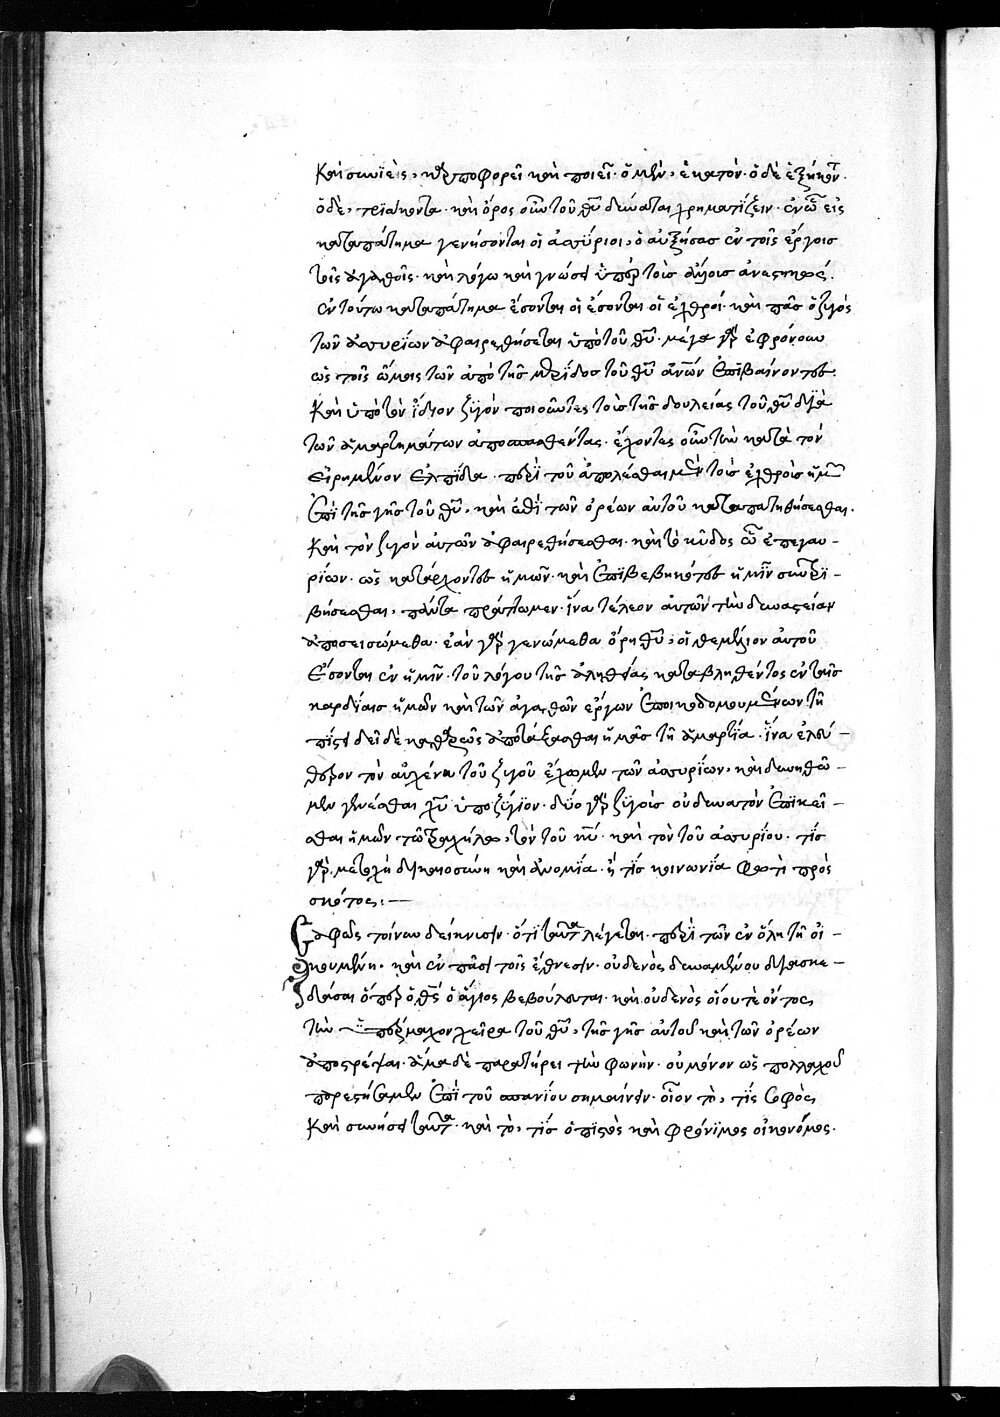 καὶ συνϊεὶς, καρποφορεῖ καὶ ποιεῖ· ὁ μὲν, ἑκατὸν· ὁ δὲ ἑξήκοντ·
ὁ δὲ, τριάκοντα· καὶ ὄρος οὖν τοῦ θῦ δύναται χρηματίζειν· ἐν ὧ εἰς
καταπάτημα γενήσονται οἱ ἀσσύριοι, ὁ αὐξήσας ἐν τοῖς ἔργοις
τοῖς ἀγαθοῖς· καὶ λόγω καὶ γνώσει ὑπὲρ τοὺς ἀνεστηκώς.
ἐν τούτω καταπάτημα ἔσονται οἱ ἔσονται οἱ ἐχθροί· καὶ πᾶς ὁ ζυγὸς
τῶν ἀσσυρίων ἀφαιρεθήσεται ὑπὸ τοῦ θῦ· μέγα γὰρ ἐφρόνουν
ὡς τοῖς ὤμοις τῶν ἀπὸ τῆς μερίδος τοῦ θῦ ἀνῶν ἐπιβαίνοντες·
καὶ ὑπὸ τὸν ἴδιον ζυγὸν ποιοῦντες τοὺς τῆς δουλείας τοῦ θῦ διὰ
τῶν ἁμαρτημάτων ἀποσπασθέντας· ἔχοντες οὖν τὴν κατὰ τὸν
εἰρημένον ἐλπίδα· περὶ τοῦ ἀπολέσθαι μὲν τοὺς ἐχθροὺς ἡμῶν
ἐπὶ τῆς γῆς τοῦ θῦ, καὶ ἐπὶ τῶν ὀρέων αὐτοῦ καταπατηθήσεσθαι·
καὶ τὸν ζυγὸν αὐτῶν ἀφαιρεθήσεσθαι· καὶ τὸ κῦδος ὧ ἐπεγαυ-
ρίων· ὡς κατάρχοντες ἡμῶν· καὶ ἐπιβεβηκότες ἡμῖν συντρι-
βήσεσθαι, πάντα πράττωμεν· ἵνα τέλεον αὐτῶν τὴν δυναστείαν
ἀποσεισώμεθα· ἐὰν γὰρ γενώμεθα ὄρη θῦ, οἱ θεμέλιοι αὐτοῦ
ἔσονται ἐν ἡμῖν· τοῦ λόγου τῆς ἀληθείας καταβληθέντος ἐν ταῖς
καρδίαις ἡμῶν καὶ τῶν ἀγαθῶν ἔργων ἐποικοδομουμένων τῆ
πίστει δεῖ δὲ καθαρῶς ἀποτάξασθαι ἡμᾶς τῆ ἁμαρτία· ἵνα ἐλεύ-
θερον τὸν αὐχένα τοῦ ζυγοῦ ἔχωμεν τῶν ἀσσυρίων, καὶ δυνηθῶ-
μεν γενέσθαι χῦ ὑποζύγιον· δύο γὰρ ζυγοὺς οὐ δυνατὸν ἐπικεῖ-
σθαι ἡμῶν τῶ τραχήλω, τόν τοῦ κῦ· καὶ τὸν τοῦ ἀσσυρίου· τίς
γὰρ μετοχὴ δικαιοσύνη καὶ ἀνομία· ἢ τίς κοινωνία φωτὶ πρὸς
σκότος:—
Σαφῶς τοίνυν δείκνυσιν· ὅτι ταῦτα λέγεται περὶ τῶν ἐν ὅλη τῆ οἰ-
κουμένη· καὶ ἐν πᾶσι τοῖς ἔθνεσιν· οὐδενὸς δυναμένου διασκε-
δάσαι ὅπερ ὁ θς ὁ ἅγιος βεβούλευται· καὶ οὐδενὸς οἵου τε ὄντος
τὴν ὑπέρμαχον χεῖρα τοῦ θῦ, τῆς γῆς αὐτοῦ καὶ τῶν ὀρέων
ἀποστρέψαι· ἅμα δὲ παρατήρει τὴν φωνὴν· οὐ μόνον ὡς πολλαχοῦ
παρεστήσαμεν ἐπὶ τοῦ σπανίου σημαίνειν· οἷον τὸ, τίς σοφὸς
καὶ συνήσει ταῦτα· καὶ τὸ, τίς ὁ πιστὸς καὶ φρόνιμος οἰκονόμος·